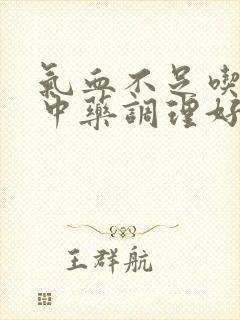 氣血不足喫
中藥調理好
王群航